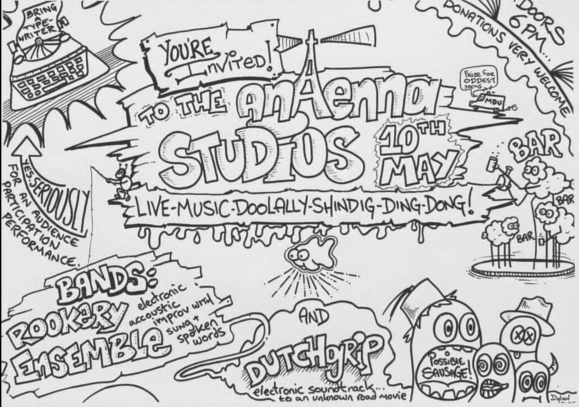 BRING
A
TYPE-
WRITER
YES, SERIOUSLY!
FOR AN AUDIENCE
PARTICIPATION
PERFORMANCE.
YOU'RE
INVITED!
TO THE anAenna
STUDIOS
10TH
MAY
LIVE-MUSIC-DOOLALLY-SHINDIG-DING-DONG!
DOORS
6PM...
DONATIONS VERY WELCOME
PRIZE FOR
ODDEST
BAR
BAR
BAR
BANDS:
ROOKARY
ENSEMBLE
electronic
accoustic
improv with
sung +
spoken
words
AND
DUTCHgRiP
electronic soundtrack...
to an unknown road movie
POSSIBLE
SAUSAGE!